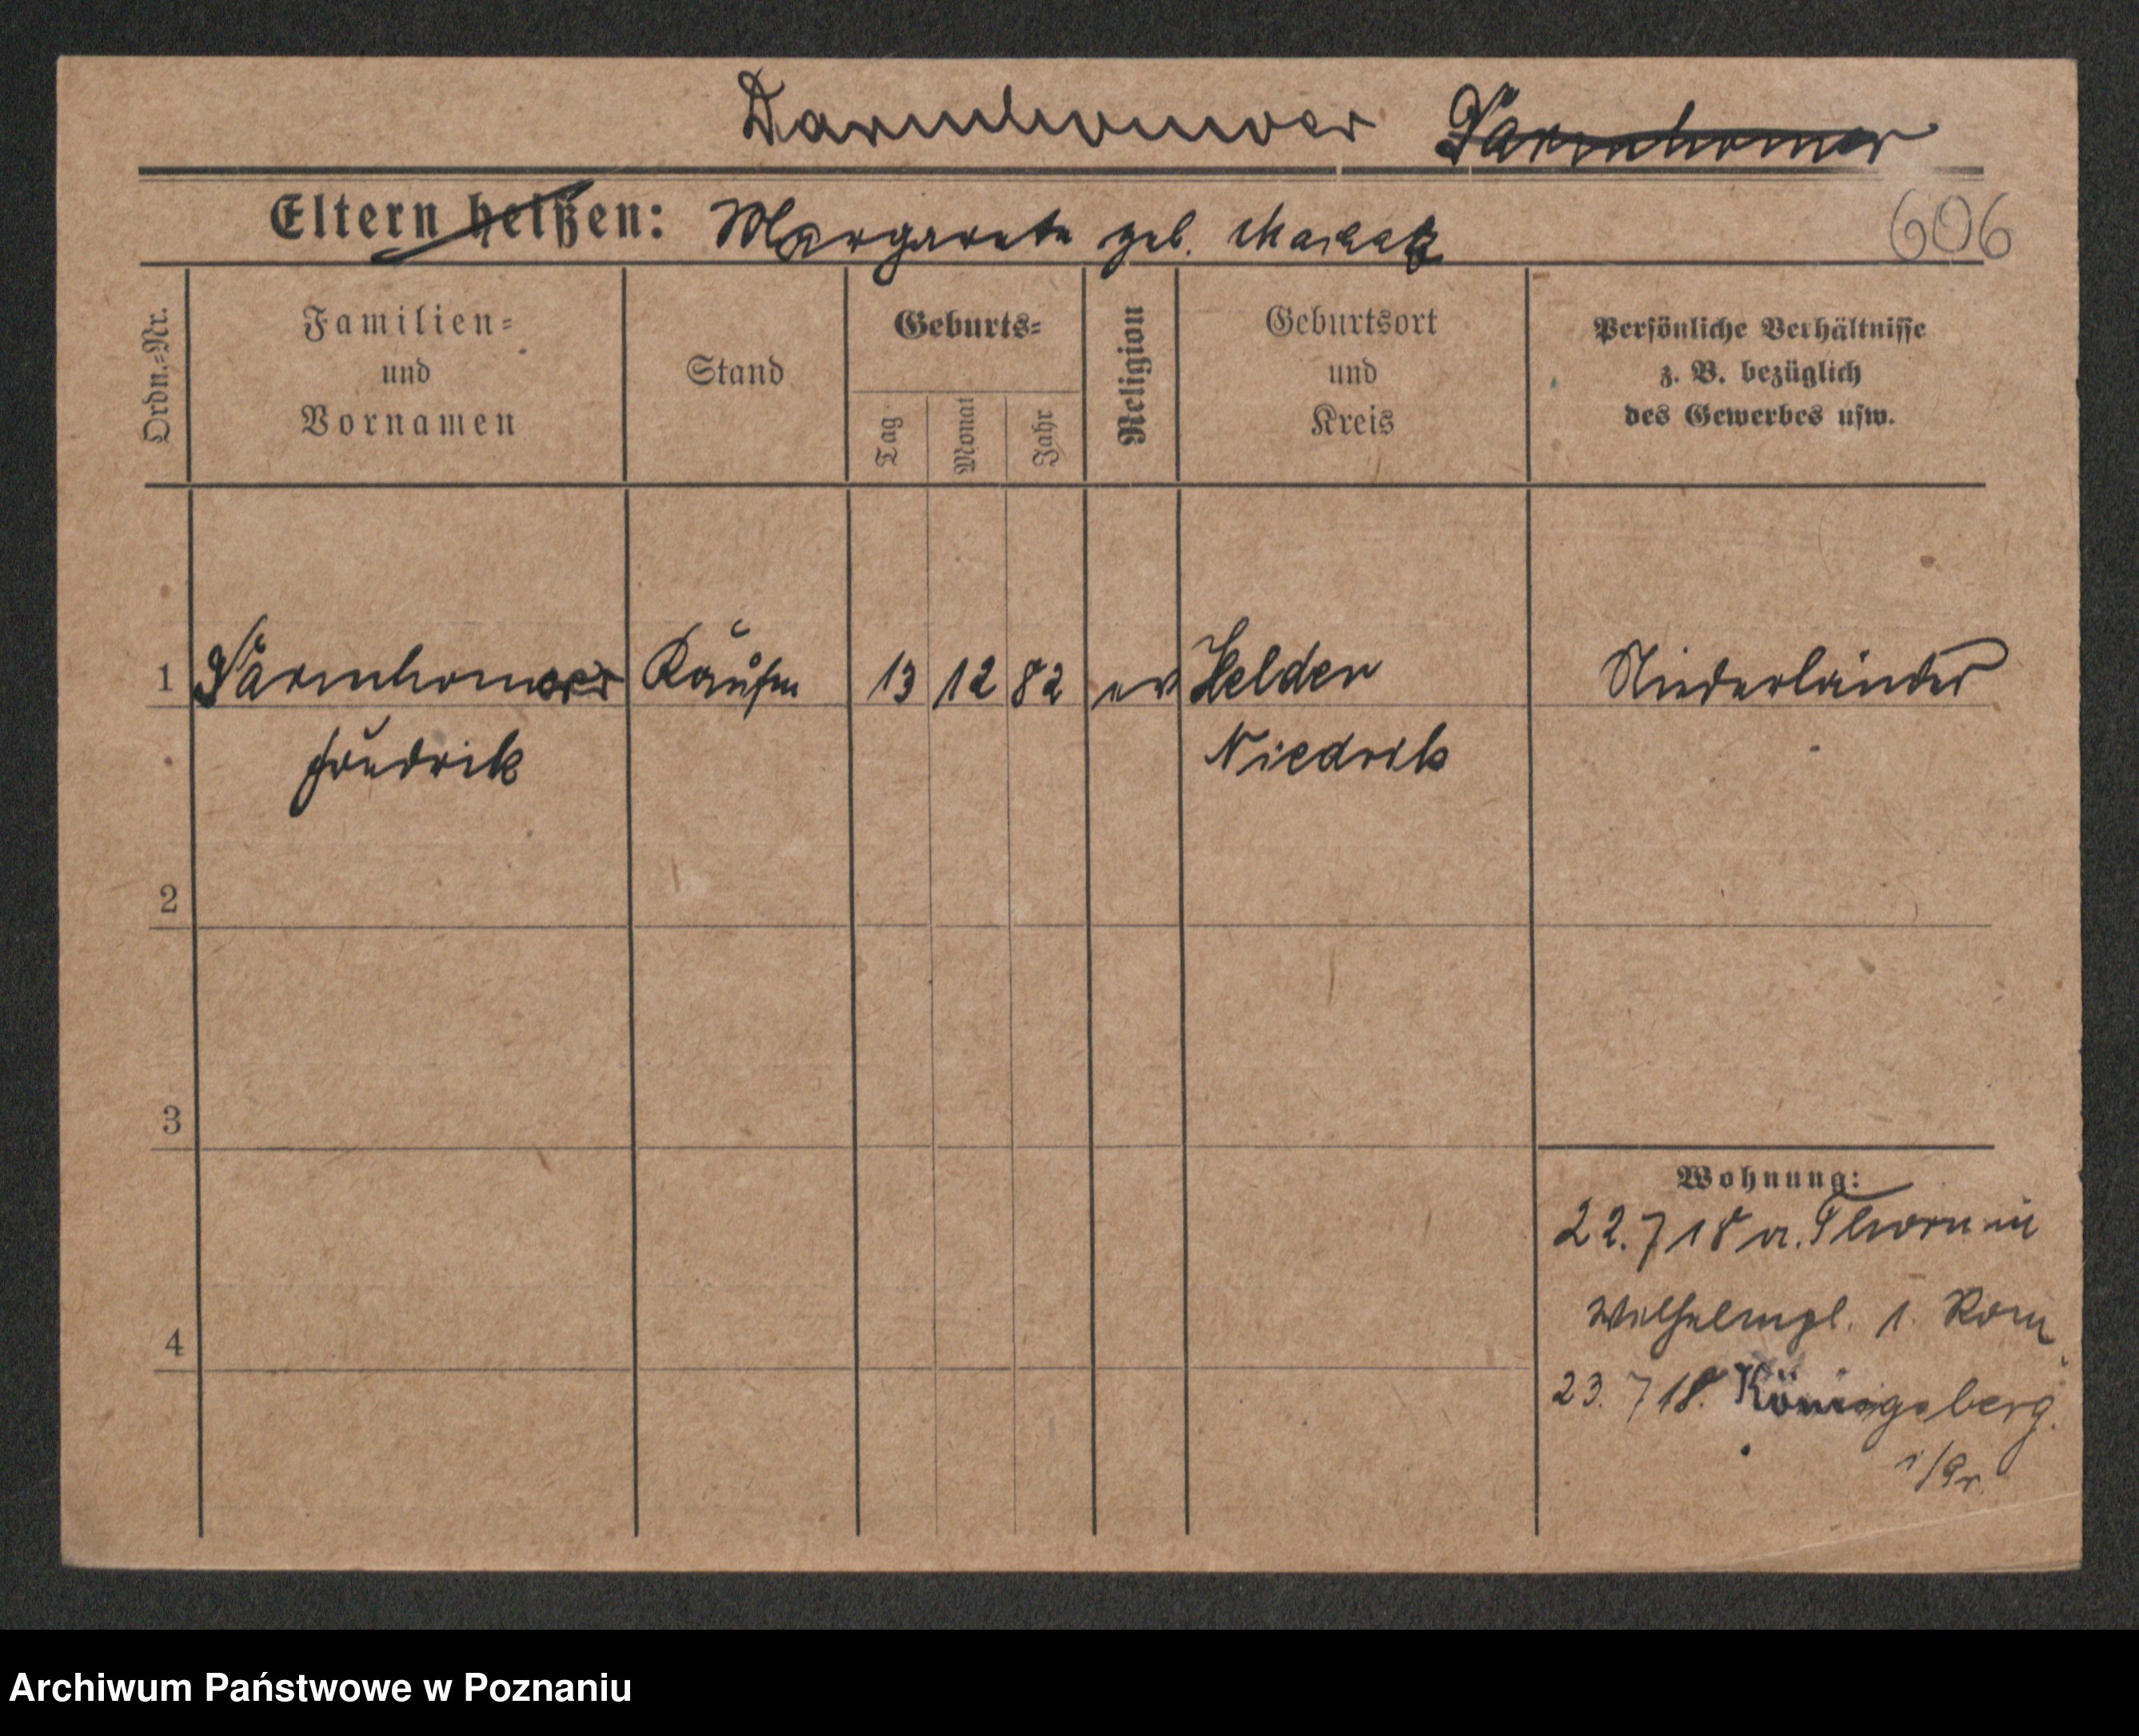 Darmhouwer Darmhomer
Eltern heißen: Margarete geb.
606
Ordn.=Nr.
Familien=
und
Vornamen
Stand
Geburts=
Tag
Monat
Jahr
Religion
Geburtsort
und
Kreis
Persönliche Verhältnisse
z. B. bezüglich
des Gewerbes usw.
1 Kaufm 13 12 82 ev Helder Niederländer
Niedrik
2
3
4
Wohnung:
22. 7 18 a. Thorn in
Wilhelmpl. 1. Rom
23. 7 18. Königsberg.
i/Pr.
Archiwum Państwowe w Poznaniu